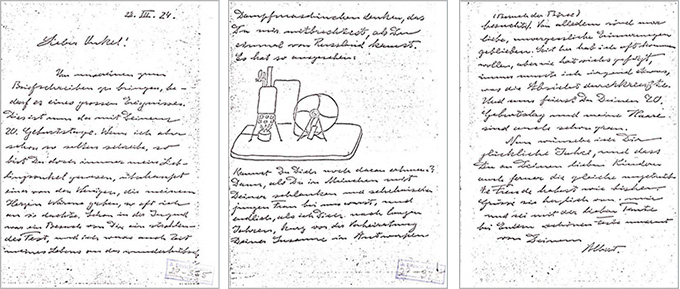 III. 24.
Lieber Onkel!
Um unsereinen zum
Briefschreiben zu bringen, be-
darf es eines grossen Ereignisses.
Dies ist nun da mit Deinem
70. Geburtstage. Wenn ich aber
schon so selten schreibe, so
bist Du doch immer mein Lieb-
lingsonkel gewesen, überhaupt
einer von den Wenigen, die meinem
Herzen Wärme gaben, so oft ich
an sie dachte. Schon in der Jugend
war ein Besuch von Dir ein strahlen-
des Fest, und ich muss auch Zeit
meines Lebens an das wunderhübsche
Dampfmaschinchen denken, das
Du uns mitbrachtest, als Du
einmal von Russland kamst.
Es hat so ausgesehen:
Kannst Du Dich noch daran erinnern?
Dann, als Du in München mit
Deiner schlanken und schelmischen
jungen Frau bei uns warst, und
endlich, als ich Dich nach langen
Jahren, kurz vor der Verheiratung
Deiner Susanne in Antwerpen
besuchte. Von alledem sind mir
liebe, unvergessliche Erinnerungen
geblieben. Seither hab ich oft kommen
wollen, aber nie hat mirs geglückt,
immer musste ich irgend etwas,
was die Absicht durchkreuzte.
Und nun feierst Du Deinen 70.
Geburtstag und meine Haare
sind auch schon grau.
Nun wünsche ich Dir
glückliche Jahre, und dass
Du an Deinen lieben Kindern
auch ferner die gleiche ungetrübte
Freude habest wie bisher.
Grüsse sie herzlich von mir
und sei mit der lieben Tante
bei Eurem schönen Feste umarmt
von Deinem
Albert.